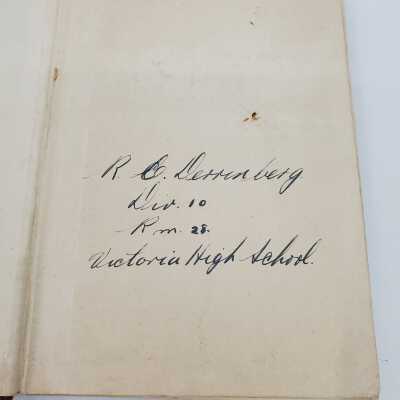 R. C. Derrinberg
Div. 10
Rm. 28.
Victoria High School.